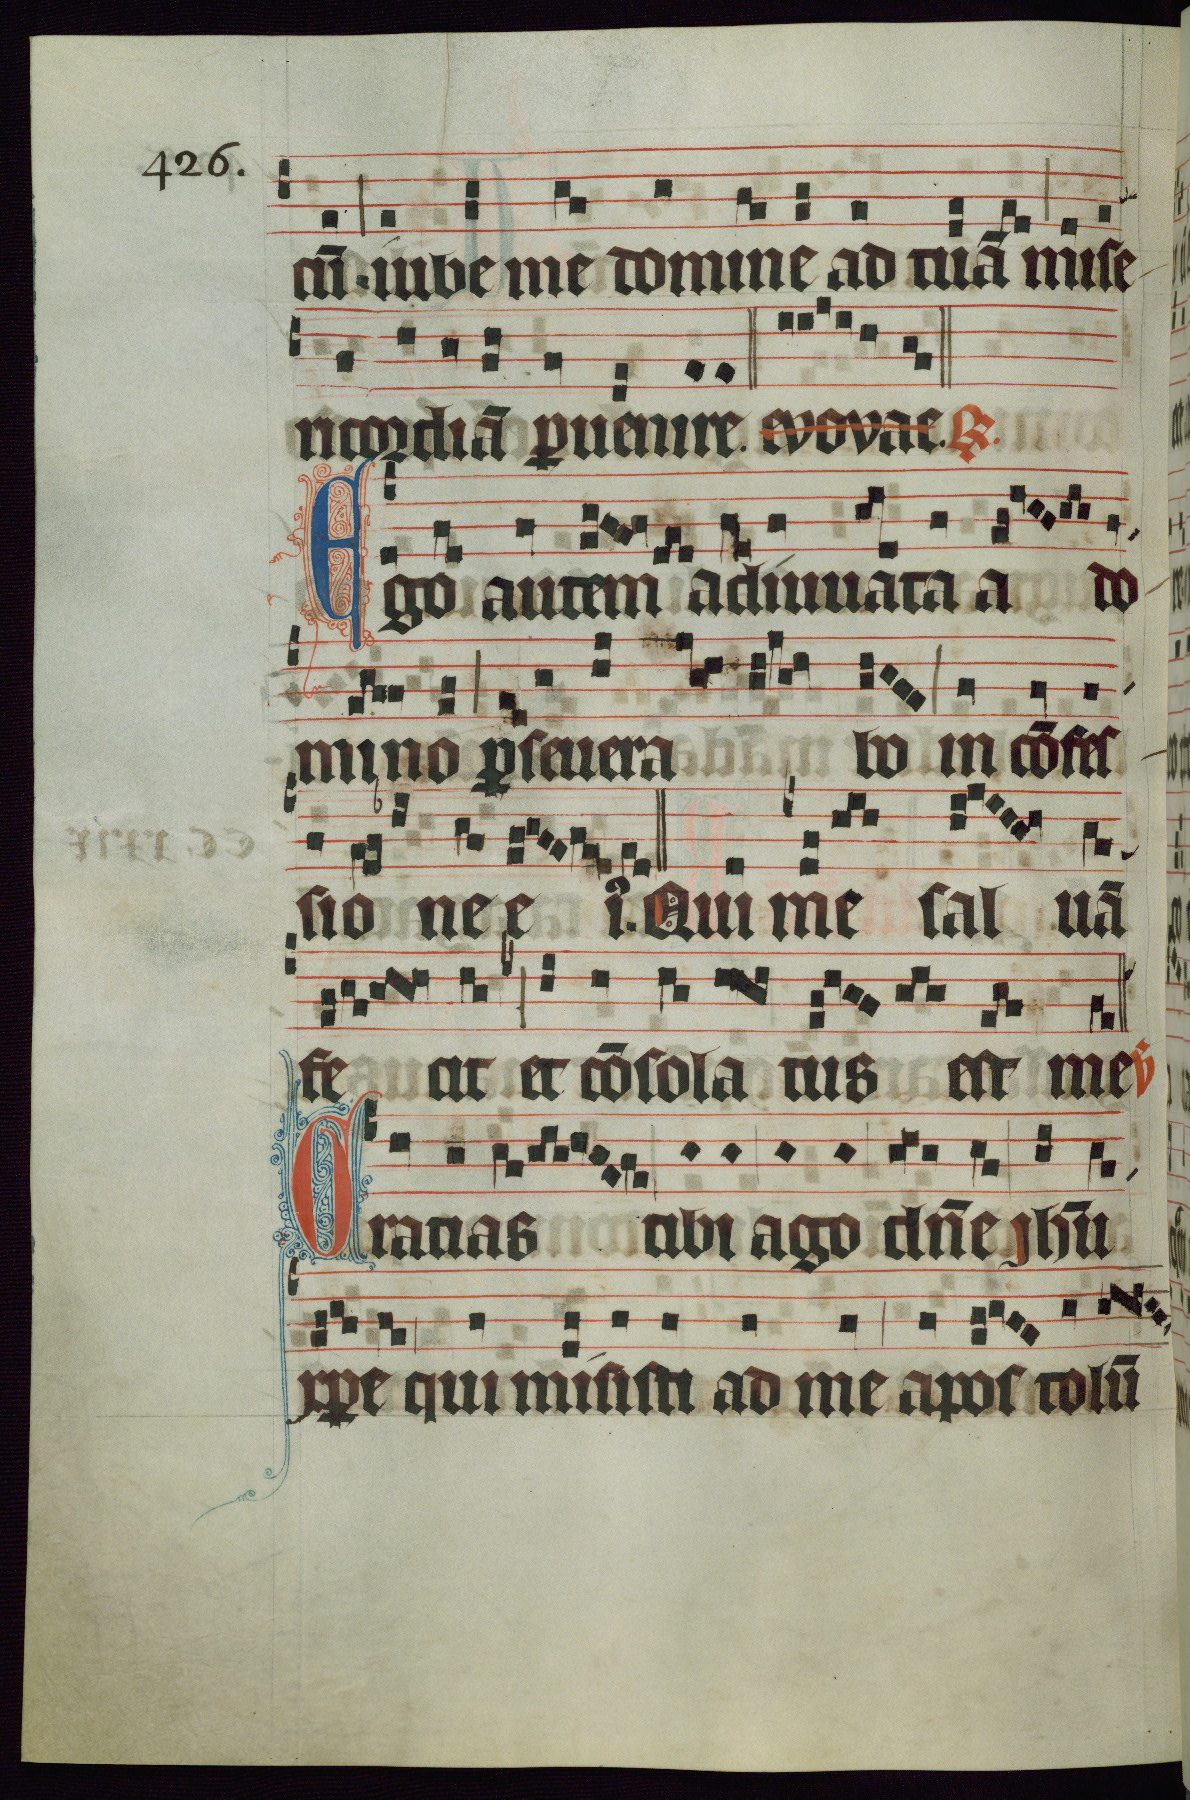 426.
cū · iube me domine ad tuā mise
ricordiā ꝑuenire. evovae. ℟.
Ego autem adiuuata a do
mino ꝑseuera bo in cōfes
sio ne e i᷒. Qui me sal uā
fe cit et cōsola tus est me ℣
Gratias tibi ago dn̄e jhū
xp̄e qui misisti ad me apos tolū